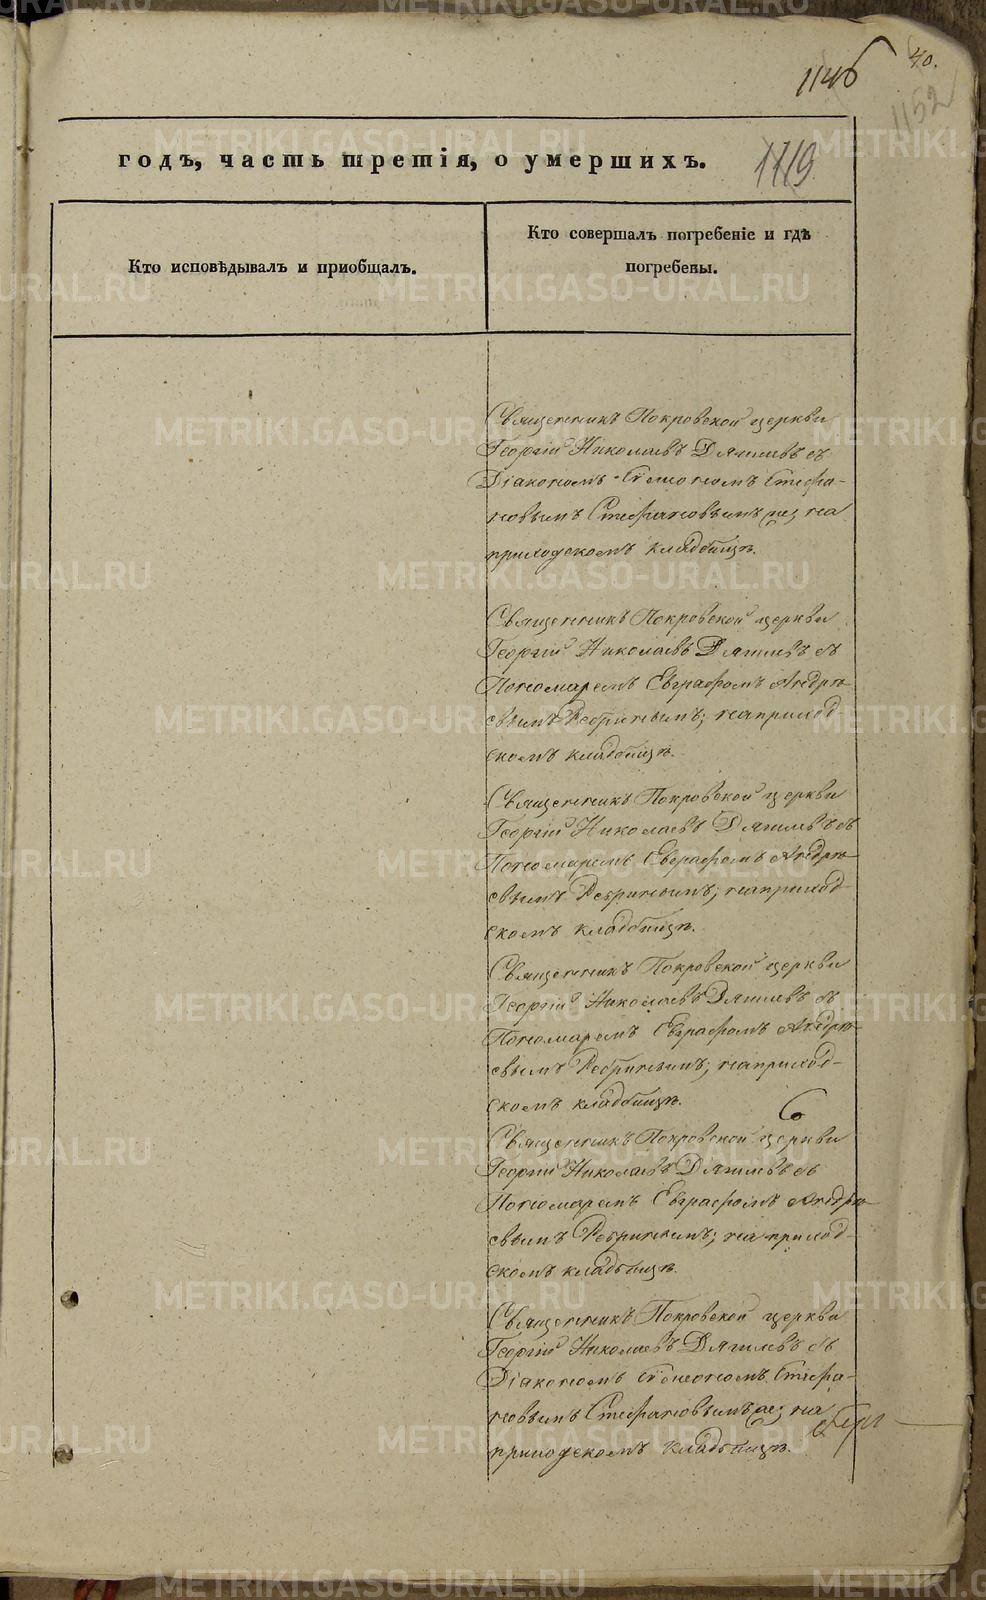 40.
1146
1152
1119
годъ, часть третія, о умершихъ.
Кто исповѣдывалъ и приобщалъ.
Кто совершалъ погребеніе и гдѣ
погребены.
Священникъ Покровской церкви
Георгій Николаевъ Дягилевъ съ
Діакономъ Симеономъ Стефа-
новымъ Стефановымъ на
приходскомъ кладбищѣ.
Священникъ Покровской церкви
Георгій Николаевъ Дягилевъ съ
Пономаремъ Евграфомъ Андрѣ-
евымъ Ребринымъ; на приход-
скомъ кладбищѣ.
Священникъ Покровской церкви
Георгій Николаевъ Дягилевъ съ
Пономаремъ Евграфомъ Андрѣ-
евымъ Ребринымъ; на приход-
скомъ кладбищѣ.
Священникъ Покровской церкви
Георгій Николаевъ Дягилевъ съ
Пономаремъ Евграфомъ Андрѣ-
евымъ Ребринымъ; на приход-
скомъ кладбищѣ.
Священникъ Покровской церкви
Георгій Николаевъ Дягилевъ съ
Пономаремъ Евграфомъ Андрѣ-
евымъ Ребринымъ; на приход-
скомъ кладбищѣ.
Священникъ Покровской церкви
Георгій Николаевъ Дягилевъ съ
Діакономъ Симеономъ Стефа-
новымъ Стефановымъ на
приходскомъ кладбищѣ.
METRIKI.GASO-URAL.RU